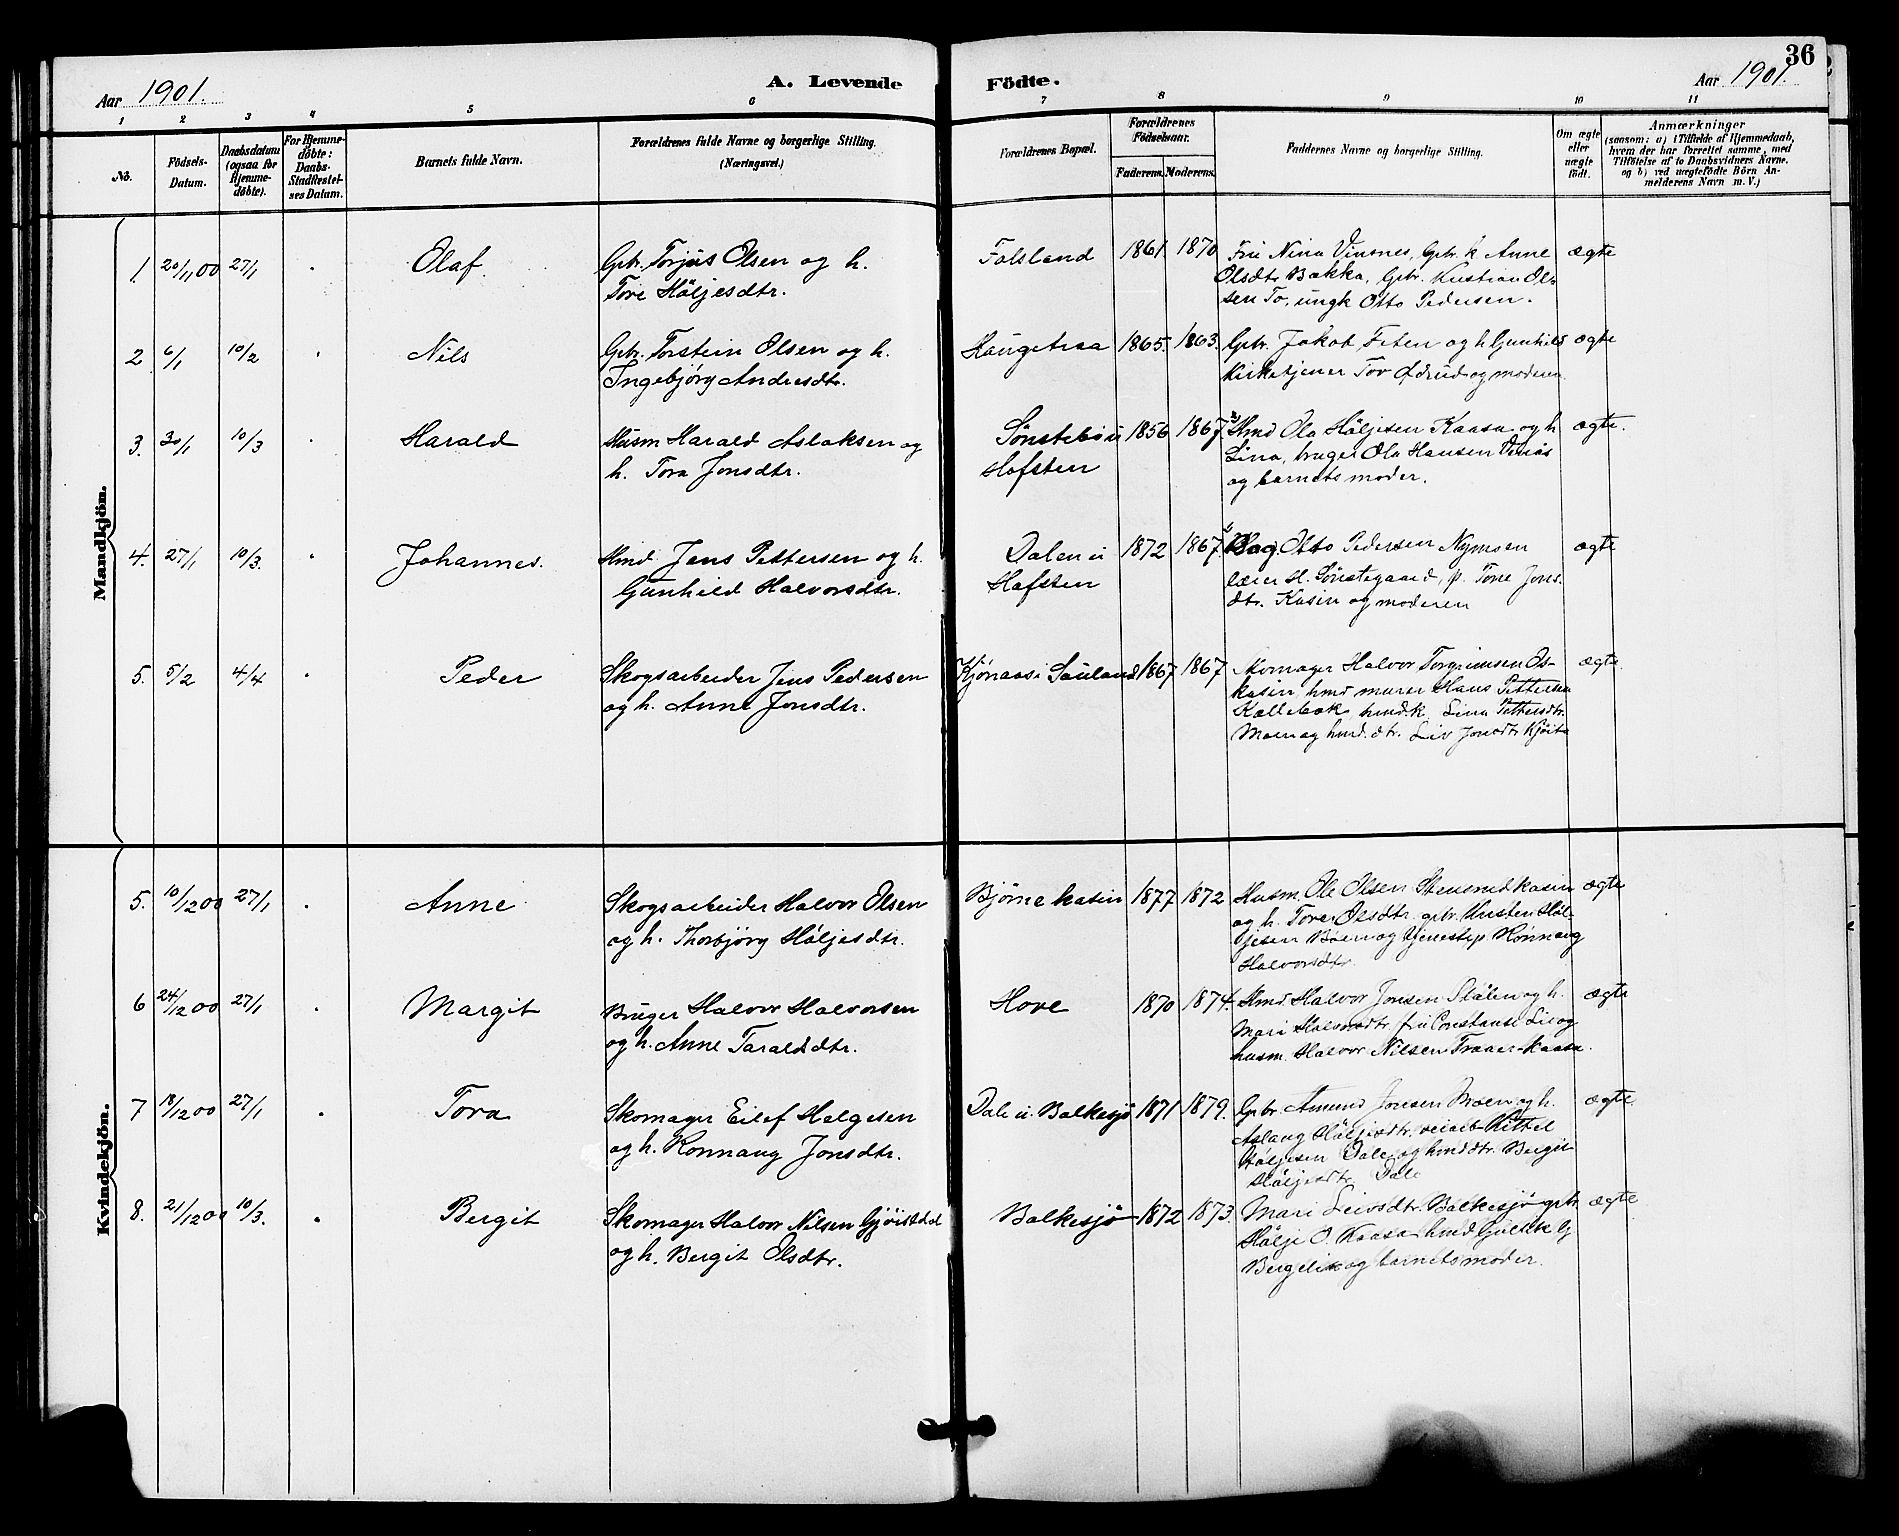 36
Aar 1901.
A. Levende Födte.
Aar 1901.
1 2 3 4 5 6 7 8 9 10 11
No.
Födsels-
Datum.
Daabsdatum
(ogsaa for
Hjemme-
döbte).
For Hjemme-
döbte:
Daabs-
Stadfæstel-
ses Datum.
Barnets fulde Navn.
Forældrenes fulde Navne og borgerlige Stilling.
(Næringsvei.)
Forældrenes Bopæl.
Forældrenes
Födselsaar.
Faderens. Moderens.
Faddernes Navne og borgerlige Stilling.
Om ægte
eller
uægte
födt.
Anmærkninger
(saasom: a) i Tilfælde af Hjemmedaab,
hvem der har forrettet samme, med
Tilföielse af to Daabsvidners Navne,
og b) ved uægtefödte Börn An-
melderens Navn m. V.)
Mandkjön.
1. 20/11 00 27/1 Olaf. Gbr. Torjus Olsen og h.
Tore Höljesdtr.
Folsland 1861. 1870 Fru Nina Vinsnes, Gbr. k. Anne
Olsdtr. Bakka, Gbr. Kristian Ol-
sen To, ungk Otto Pedersen.
ægte
2 6/1 10/2 Nils Gbr. Torstein Olsen og h.
Ingebjörg Andresdtr.
Haugetraa 1865. 1863. Gbr. Jakob Feten og h Gunhild
Kirketjener Tov og moderen
ægte
3. 30/1 10/3 Harald Husm Harald Aslaksen og
h. Tora Jonsdtr.
Sønstebö u
Hofsten
1856 1867 Hmd Ola Höljesen Kaasa og h
Lina, bruger Ola Hansen
og barnets moder.
ægte.
4. 27/1 10/3. Johannes. Hmd. Jens Pettersen og h.
Gunhild Halvorsdtr.
Dalen u
Hofsten
1872 1867. Dag. Otto Pedersen Nymoen
lærer H. Sönstegaard, p. Tone Jons-
dtr. Kasin og moderen
ægte
5. 5/2 4/4 Peder Skogsarbeider Jens Pedersen
og h. Anne Jonsdtr.
Kjönaas i Sauland 1867 1867 Skomager Halvor Torgrimsen Os-
kasin, hmd murer Hans Pettersen
Kallebak, hmd. k. Lina Pettersdtr.
Moen og hmd. dtr. Liv Jonsdtr Kjöita
ægte.
Kvindekjön.
5. 10/12 00 27/1 Anne Skogsarbeider Halvor Olsen
og h. Thorbjörg Höljesdtr.
Bjørnekasin 1877 1872 Husm. Ole Olsen Stensrudkasin
og h. Tore Olsdtr. gbr. Kristen Höl-
jesen Böen og tjenestep. Rönnaug
Halvorsdtr.
ægte
6 24/12 00 27/1 Margit Bruger Halvor Halvorsen
og h. Anne Taraldsdtr.
Hove 1870 1874. Hmd. Halvor Jonsen Slålien og h.
Mari Halvorsdtr. fru Constanse Lie og
husm. Halvor Nilsen Traaer-kaasa.
ægte
7 18/12 00 27/1 Tora Skomager Eilef Helgesen
og h. Ronnaug Jonsdtr.
Dale u. Bolkesjö 1871 1879. Gbr. Amund Jonsen Moen og h.
Aslaug Höljesdtr. veiarb Kittel
Höljesen Dale og hmddtr. Bergit
Höljesdtr. Dale
ægte.
8. 21/12 00 10/3. Bergit Skomager Halvor Nilsen Gjöisdal
og h. Bergit Olsdtr.
Bolkesjö 1872 1873. Mari Leivsdtr. Bolkesjö gbr.
Hölje O. Kaasa hmd
Bergelien og barnets moder.
ægte